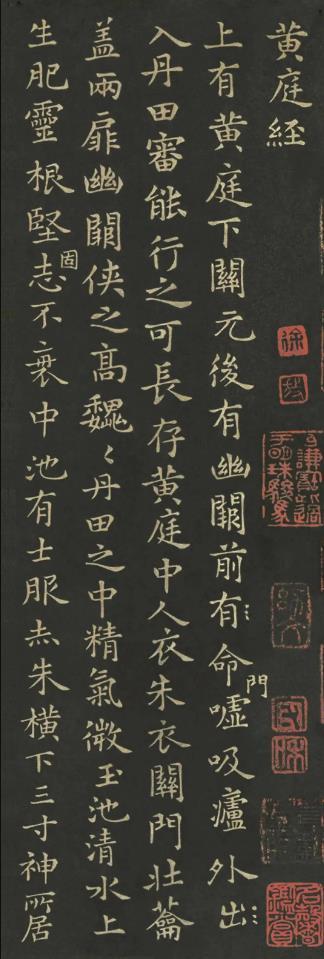 黄庭經
上有黄庭下關元後有幽闕前有命門噓吸廬外出
入丹田審能行之可長存黄庭中人衣朱衣關門壯蘥
盖兩扉幽闕侠之高魏〻丹田之中精氣微玉池清水上
生肥靈根堅固志不衰中池有士服赤朱横下三寸神所居